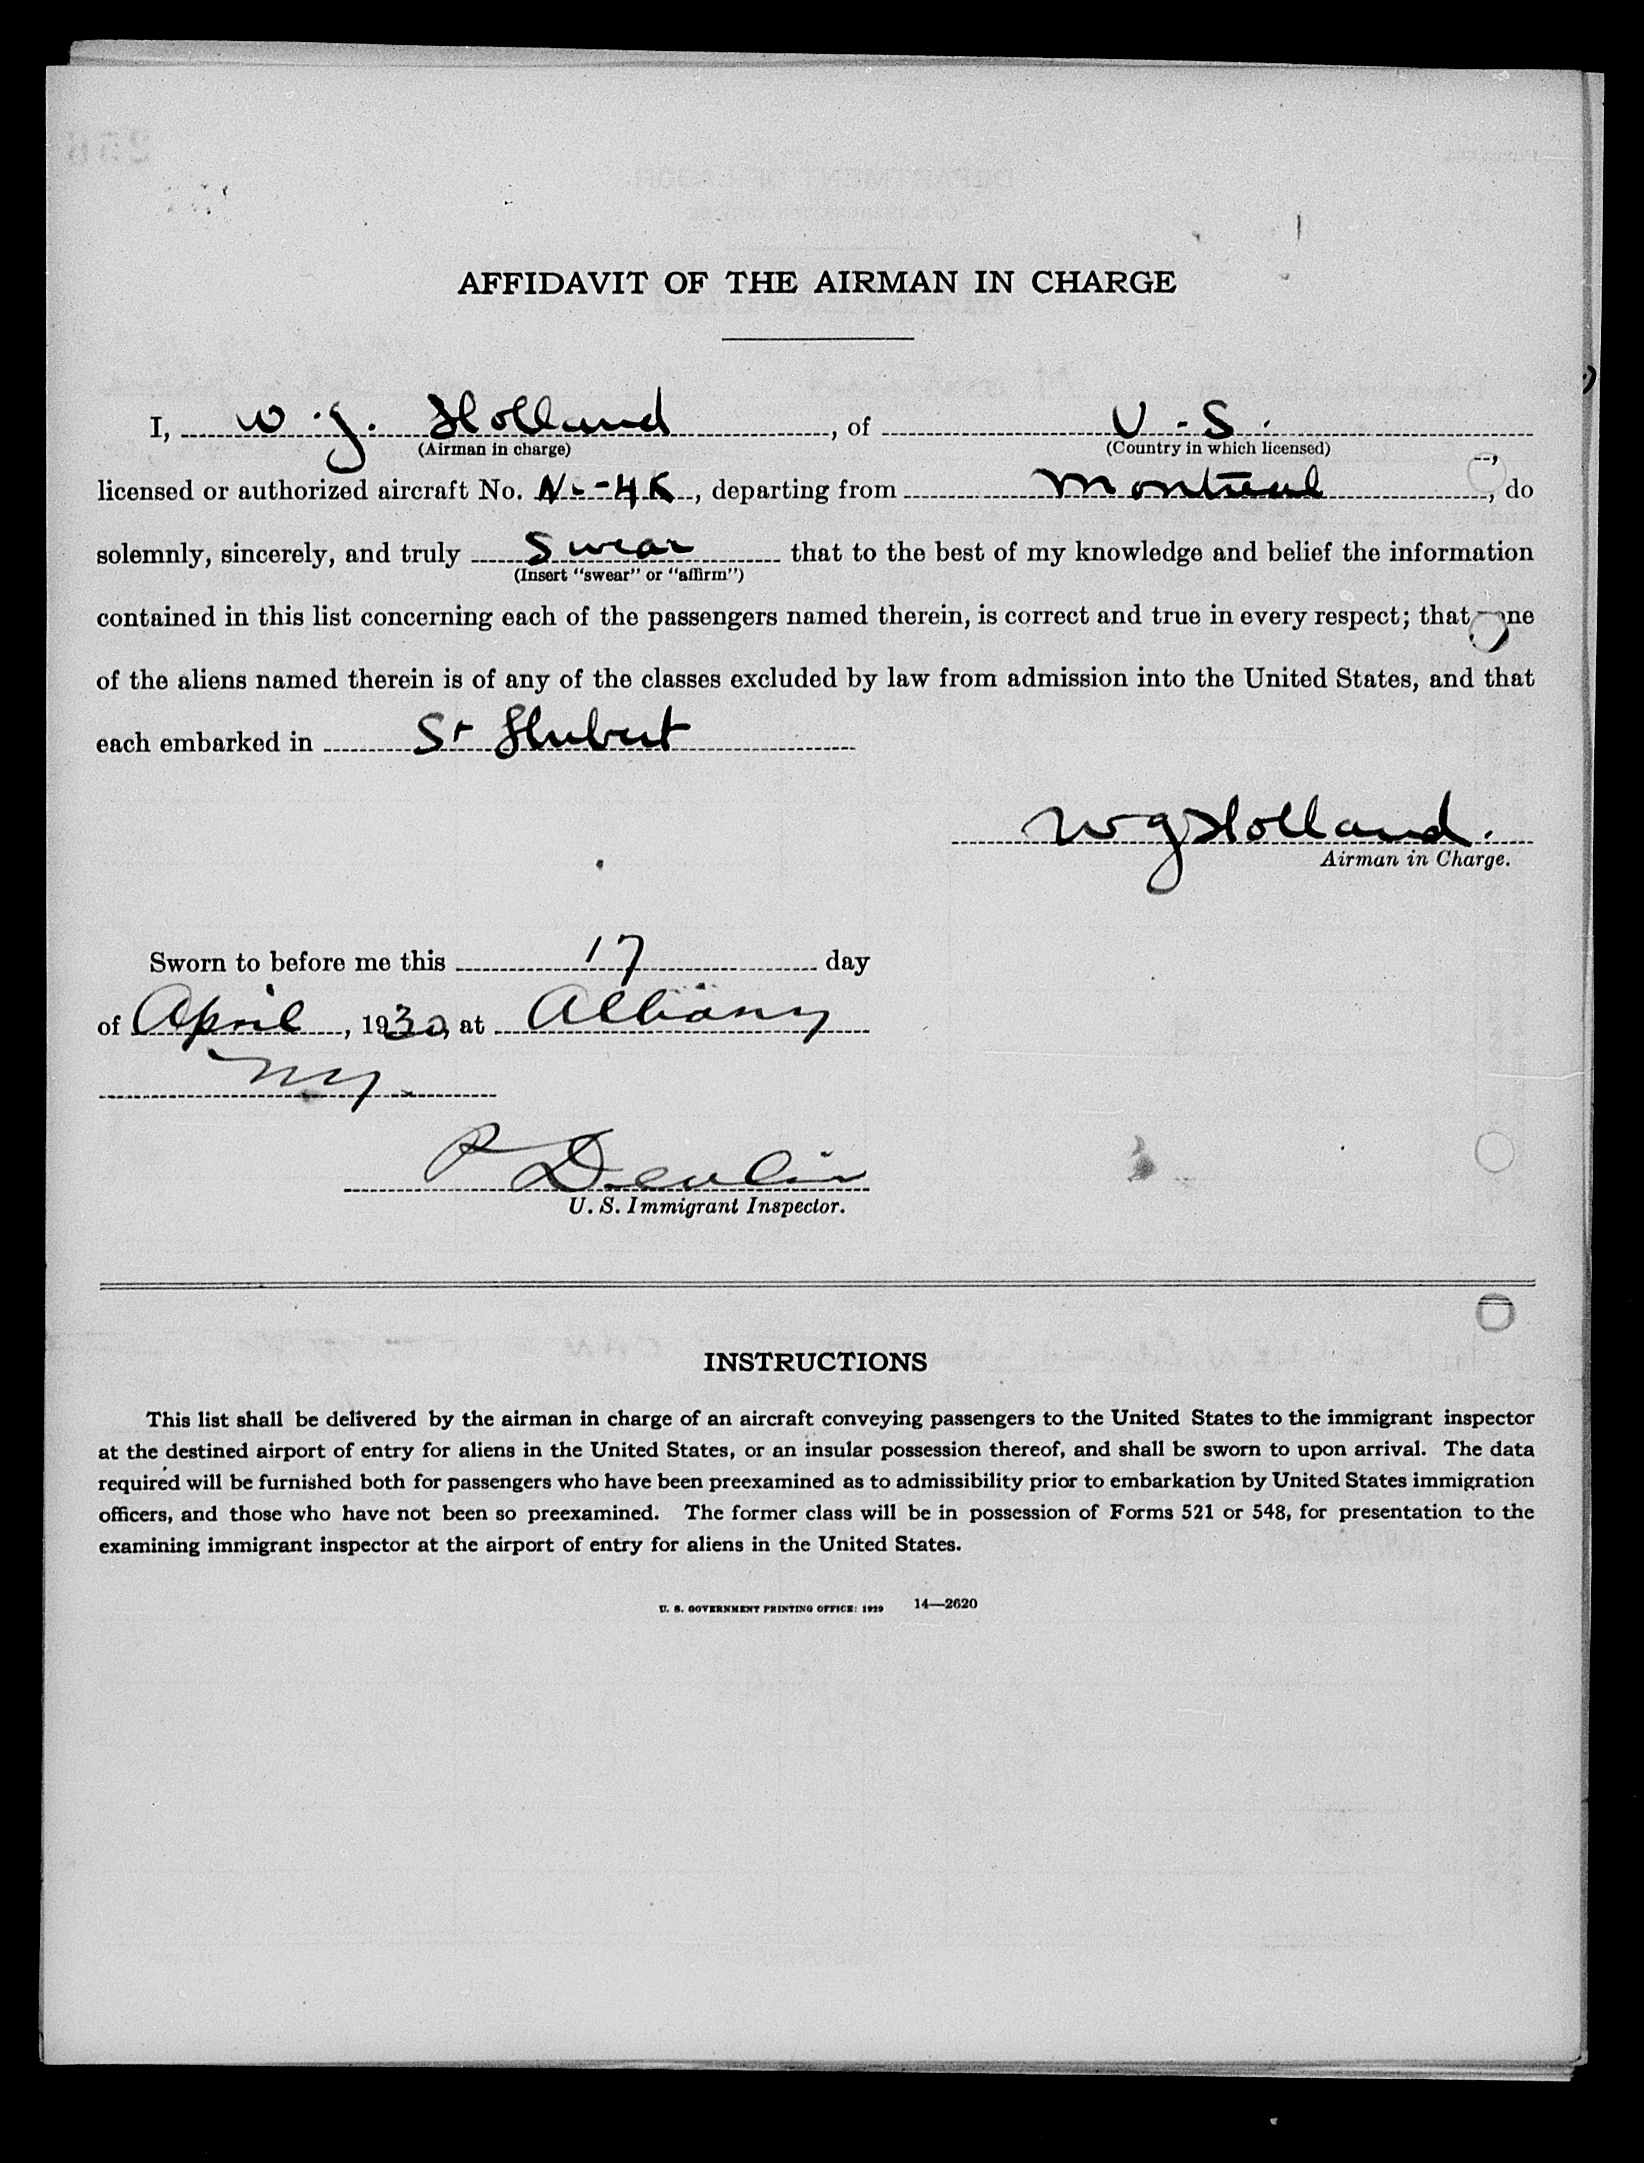 AFFIDAVIT OF THE AIRMAN IN CHARGE
I, W. J. Holland, of U.S.
(Airman in charge) (Country in which licensed)
licensed or authorized aircraft No. N.-4K, departing from Montreal, do
solemnly, sincerely, and truly Swear that to the best of my knowledge and belief the information
(Insert "swear" or "affirm")
contained in this list concerning each of the passengers named therein, is correct and true in every respect; that none
of the aliens named therein is of any of the classes excluded by law from admission into the United States, and that
each embarked in St Hubert
WJ Holland.
Airman in Charge.
Sworn to before me this 17 day
of April, 1930, at Albany
NY.
P Devlin
U. S. Immigrant Inspector.
INSTRUCTIONS
This list shall be delivered by the airman in charge of an aircraft conveying passengers to the United States to the immigrant inspector
at the destined airport of entry for aliens in the United States, or an insular possession thereof, and shall be sworn to upon arrival. The data
required will be furnished both for passengers who have been preexamined as to admissibility prior to embarkation by United States immigration
officers, and those who have not been so preexamined. The former class will be in possession of Forms 521 or 548, for presentation to the
examining immigrant inspector at the airport of entry for aliens in the United States.
U. S. GOVERNMENT PRINTING OFFICE: 1929 14—2620